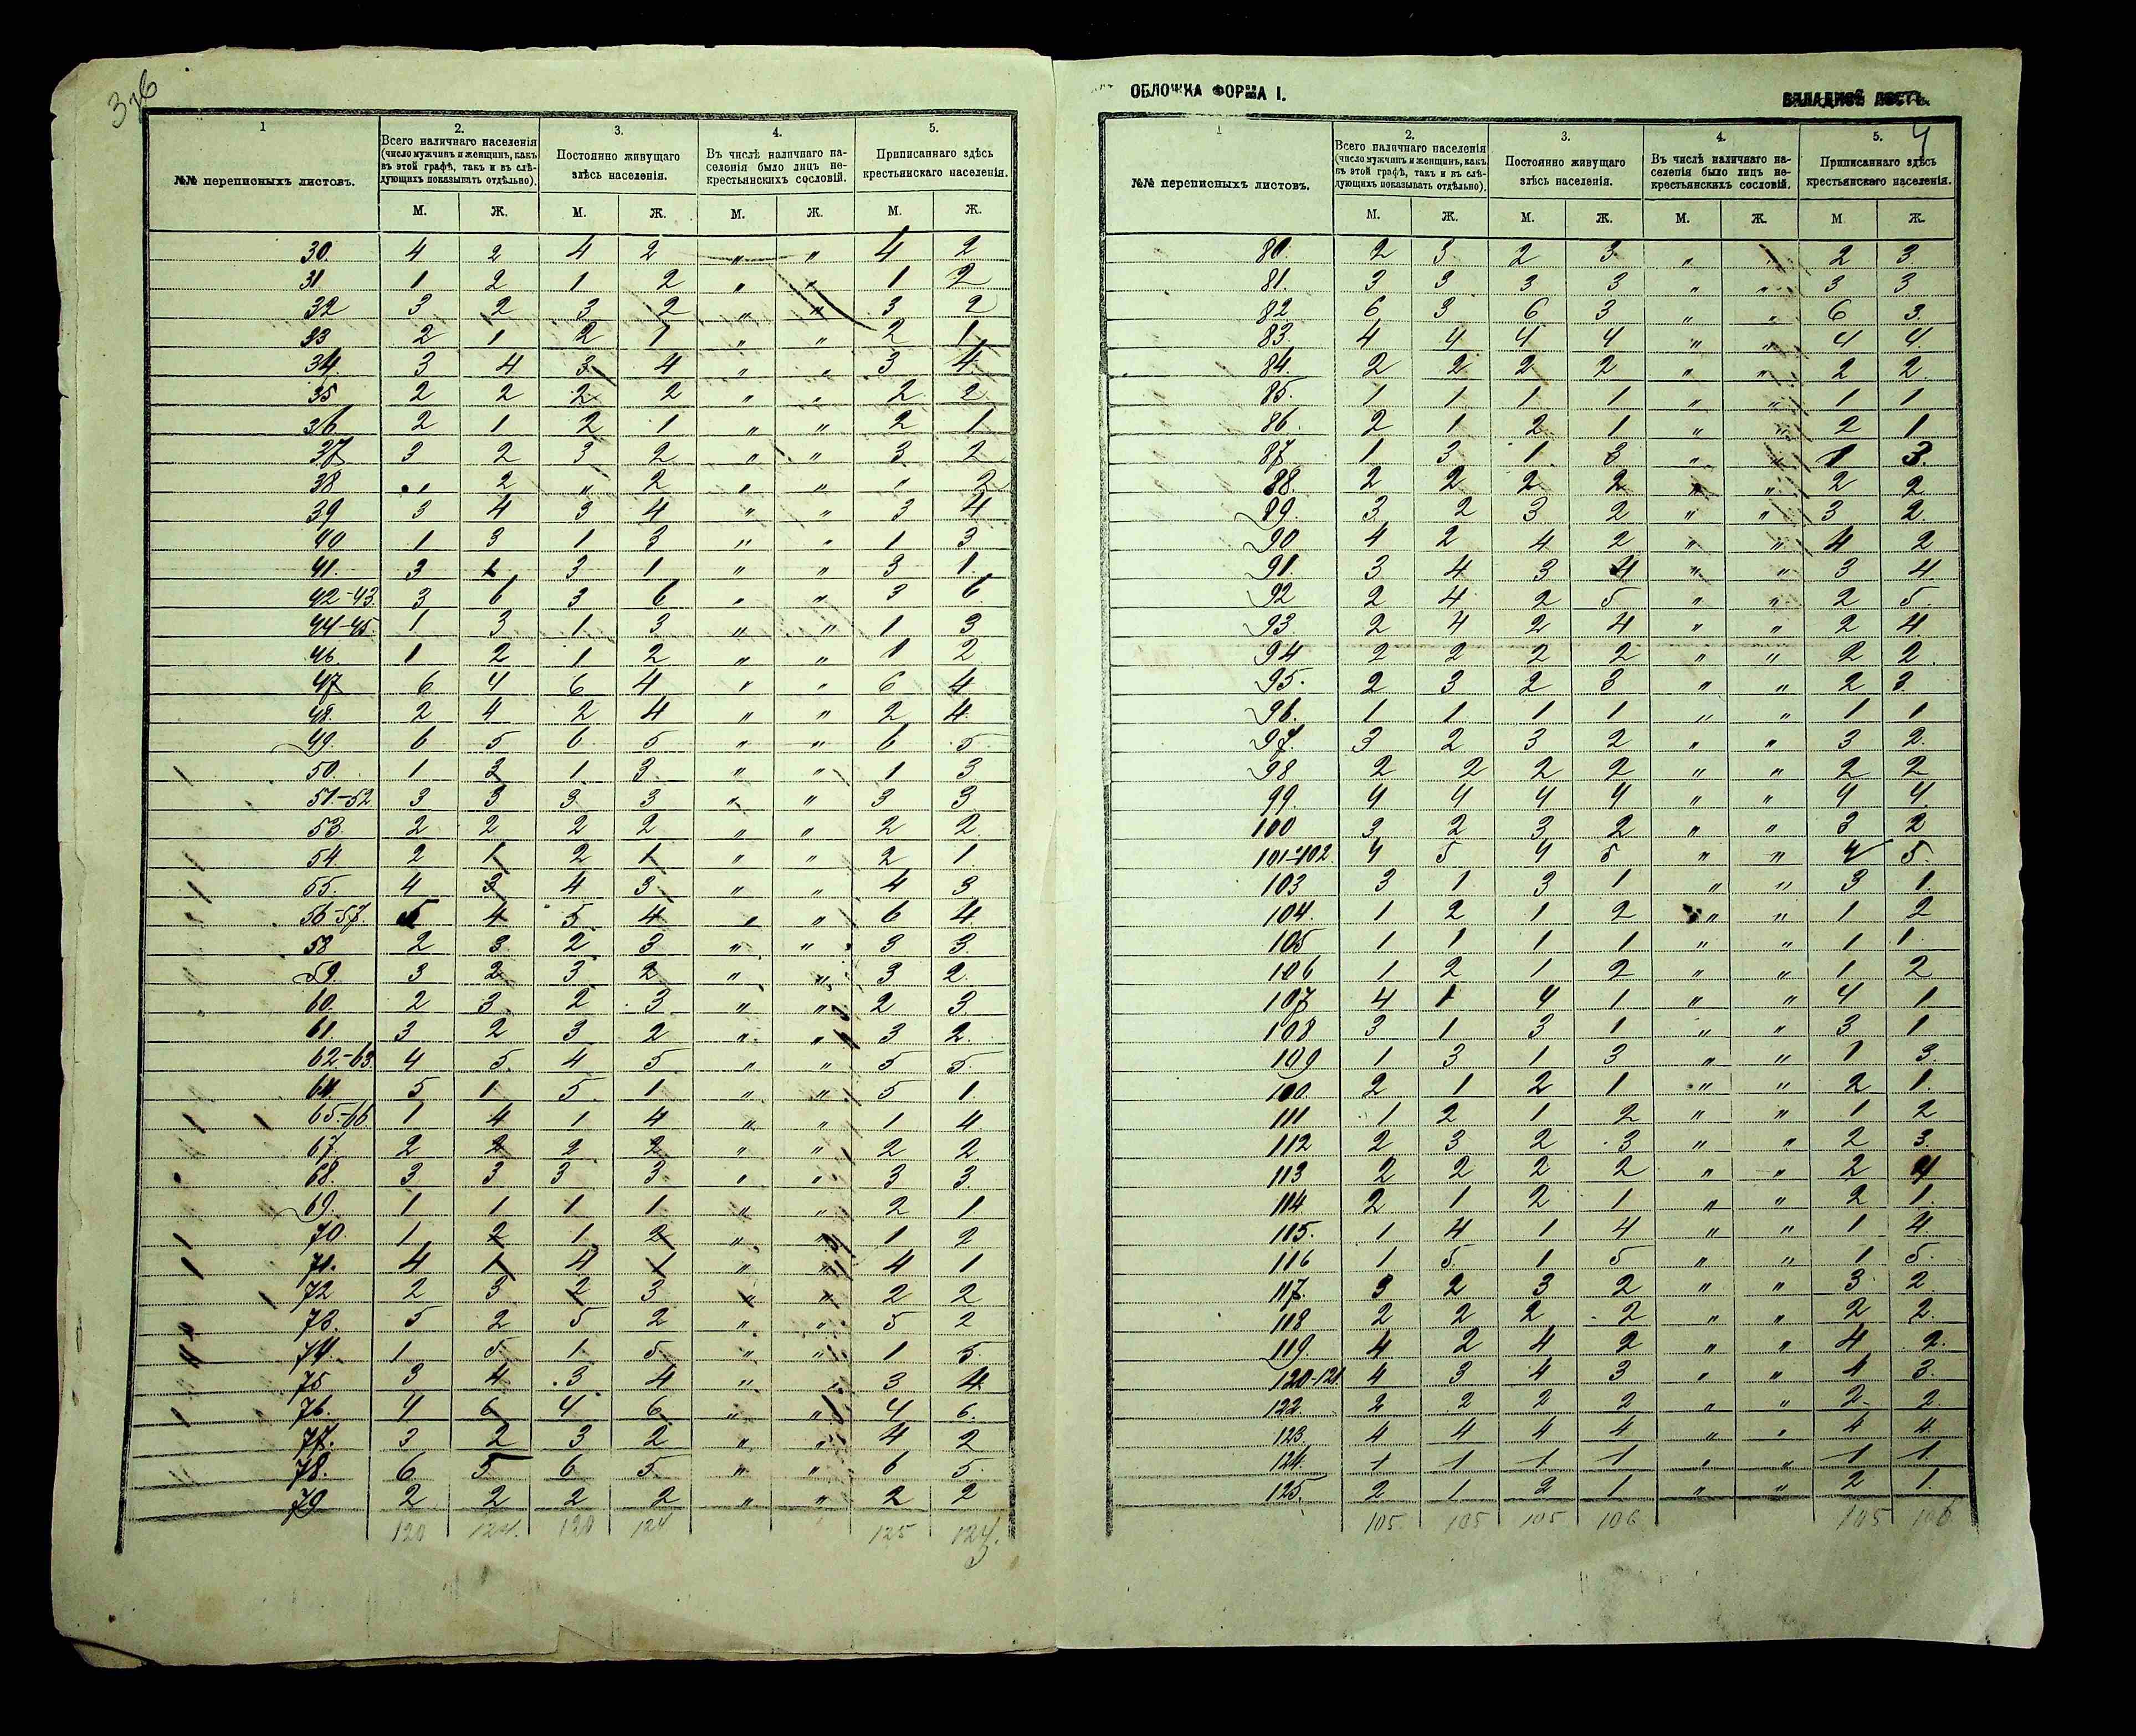 326
1
2.
3.
4.
5.
№№ переписныхъ листовъ.
Всего наличнаго населенія
(число мужчинъ и женщинъ, какъ
въ этой графѣ, такъ и въ слѣ-
дующихъ показывать отдѣльно).
Постоянно живущаго
здѣсь населенія.
Въ числѣ наличнаго на-
селенія было лицъ не-
крестьянскихъ сословій.
Приписаннаго здѣсь
крестьянскаго населенія.
М. Ж. М. Ж. М. Ж. М. Ж.
30. 4 2 4 2 „ „ 4 2
31 1 2 1 2 „ „ 1 2
32 3 2 3 2 „ „ 3 2
33 2 1 2 1 „ „ 2 1
34. 3 4 3 4 „ „ 3 4
35 2 2 2 2 „ „ 2 2
36. 2 1 2 1 „ „ 2 1
37 3 2 3 2 „ „ 3 2
38 „ 2 „ 2 „ „ „ 2
39 3 4 3 4 „ „ 3 4
40 1 3 1 3 „ „ 1 3
41. 3 1 3 1 „ „ 3 1.
42-43. 3 6 3 6 „ „ 3 6
44-45. 1 3 1 3 „ „ 1 3
46. 1 2 1 2 „ „ 1 2
47 6 4 6 4 „ „ 6 4
48. 2 4 2 4 „ „ 2 4.
49. 6 5 6 5 „ „ 6 5
50. 1 3 1 3 „ „ 1 3
51.-52 3 3 3 3 „ „ 3 3
53 2 2 2 2 „ „ 2 2
54. 2 1 2 1 „ „ 2 1.
55. 4 3 4 3 „ „ 4 3
56-57. 5 4 5 4 „ „ 6 4
58 2 3 2 3 „ „ 3 3
59. 3 2 3 2 „ „ 3 2
60. 2 3 2 3 „ „ 2 3
61. 3 2 3 2 „ „ 3 2.
62.-63. 4 5 4 5 „ „ 5 5
64 5 1 5 1 „ „ 5 1
65.-66 1 4 1 4 „ „ 1 4
67. 2 2 2 2 „ „ 2 2
68. 3 3 3 3 „ „ 3 3
69. 1 1 1 1 „ „ 2 1
70. 1 2 1 2 „ „ 1 2
71. 4 1 4 1 „ „ 4 1
72 2 3 2 3 „ „ 2 2
73. 5 2 5 2 „ „ 5 2
74. 1 5 1 5 „ „ 1 5
75 3 4 3 4 „ „ 3 4
76. 4 6 4 6 „ „ 4 6.
77. 3 2 3 2 „ „ 4 2
78. 6 5 6 5 „ „ 6 5
79 2 2 2 2 „ „ 2 2
120 124. 120 124 125 124.
ОБЛОЖКА ФОРМА I.
ВКЛАДНОЙ ЛИСТЪ.
4
1
2.
3.
4.
5.
№№ переписныхъ листовъ.
Всего наличнаго населенія
(число мужчинъ и женщинъ, какъ
въ этой графѣ, такъ и въ слѣ-
дующихъ показывать отдѣльно).
Постоянно живущаго
здѣсь населенія.
Въ числѣ наличнаго на-
селенія было лицъ не-
крестьянскихъ сословій.
Приписаннаго здѣсь
крестьянскаго населенія.
М. Ж. М. Ж. М. Ж. М Ж.
80. 2 3 2 3 „ „ 2 3
81. 3 3 3 3 „ „ 3 3
82. 6 3 6 3 „ „ 6 3.
83. 4 4 4 4 „ „ 4 4
84. 2 2 2 2 „ „ 2 2.
85. 1 1 1 1 „ „ 1 1
86. 2 1 2 1 „ „ 2 1
87 1 3 1 3 „ „ 1 3.
88. 2 2 2 2 „ „ 2 2
89. 3 2 3 2 „ „ 3 2.
90 4 2 4 2 „ „ 4 2
91. 3 4 3 4 „ „ 3 4
92 2 4 2 5 „ „ 2 5.
93. 2 4 2 4 „ „ 2 4.
94 2 2 2 2 „ „ 2 2.
95. 2 3 2 3 „ „ 2 3.
96. 1 1 1 1 „ „ 1 1
97. 3 2 3 2 „ „ 3 2.
98 2 2 2 2 „ „ 2 2
99. 4 4 4 4 „ „ 4 4.
100 3 2 3 2 „ „ 3 2
101-102. 4 5 4 5 „ „ 4 5.
103 3 1 3 1 „ „ 3 1.
104. 1 2 1 2 „ „ 1 2
105 1 1 1 1 „ „ 1 1.
106 1 2 1 2 „ „ 1 2
107 4 1 4 1 „ „ 4 1
108 3 1 3 1 „ „ 3 1
109 1 3 1 3 „ „ 1 3.
100. 2 1 2 1 „ „ 2 1.
111 1 2 1 2 „ „ 1 2
112 2 3 2 3 „ „ 2 3.
113 2 2 2 2 „ „ 2
114 2 1 2 1 „ „ 2 1.
115. 1 4 1 4 „ „ 1 4.
116 1 5 1 5 „ „ 1 5.
117. 3 2 3 2 „ „ 3 2.
118 2 2 2 2 „ „ 2 2.
119. 4 2 4 2 „ „ 4 2.
120-121 4 3 4 3 „ „ 4 3.
122. 2 2 2 2 „ „ 2 2.
123. 4 4 4 4 „ „ 4 4.
124. 1 1 1 1 „ „ 1 1.
125. 2 1 2 1 „ „ 2 1.
105 105 105 106 105 106